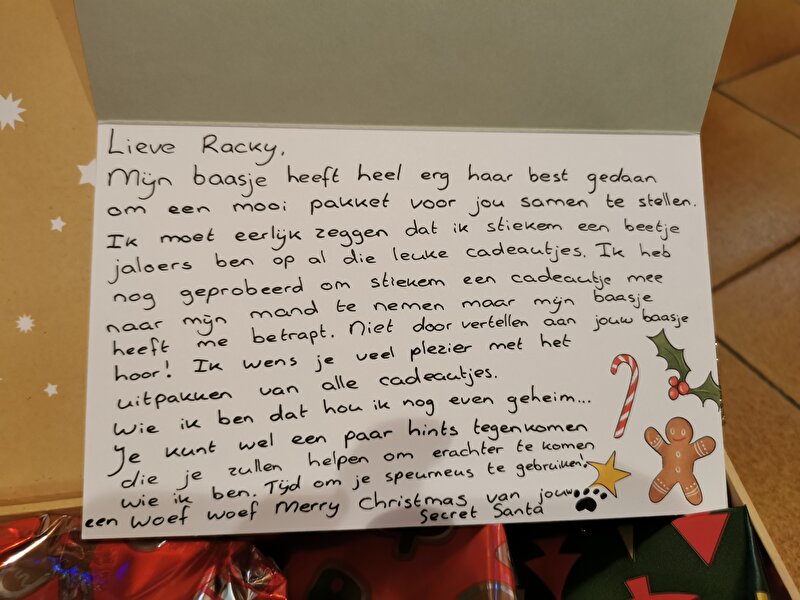 Lieve Racky,
Mijn baasje heeft heel erg haar best gedaan
om een mooi pakket voor jou samen te stellen.
Ik moet eerlijk zeggen dat ik stiekem een beetje
jaloers ben op al die leuke cadeautjes. Ik heb
nog geprobeerd om stiekem een cadeautje mee
naar mijn mand te nemen maar mijn baasje
heeft me betrapt. Niet door vertellen aan jouw baasje
hoor! Ik wens je veel plezier met het
uitpakken van alle cadeautjes.
Wie ik ben dat hou ik nog even geheim...
Je kunt wel een paar hints tegenkomen
die je zullen helpen om erachter te komen
wie ik ben. Tijd om je speurneus te gebruiken!
een woef woef Merry Christmas van jouw
Secret Santa